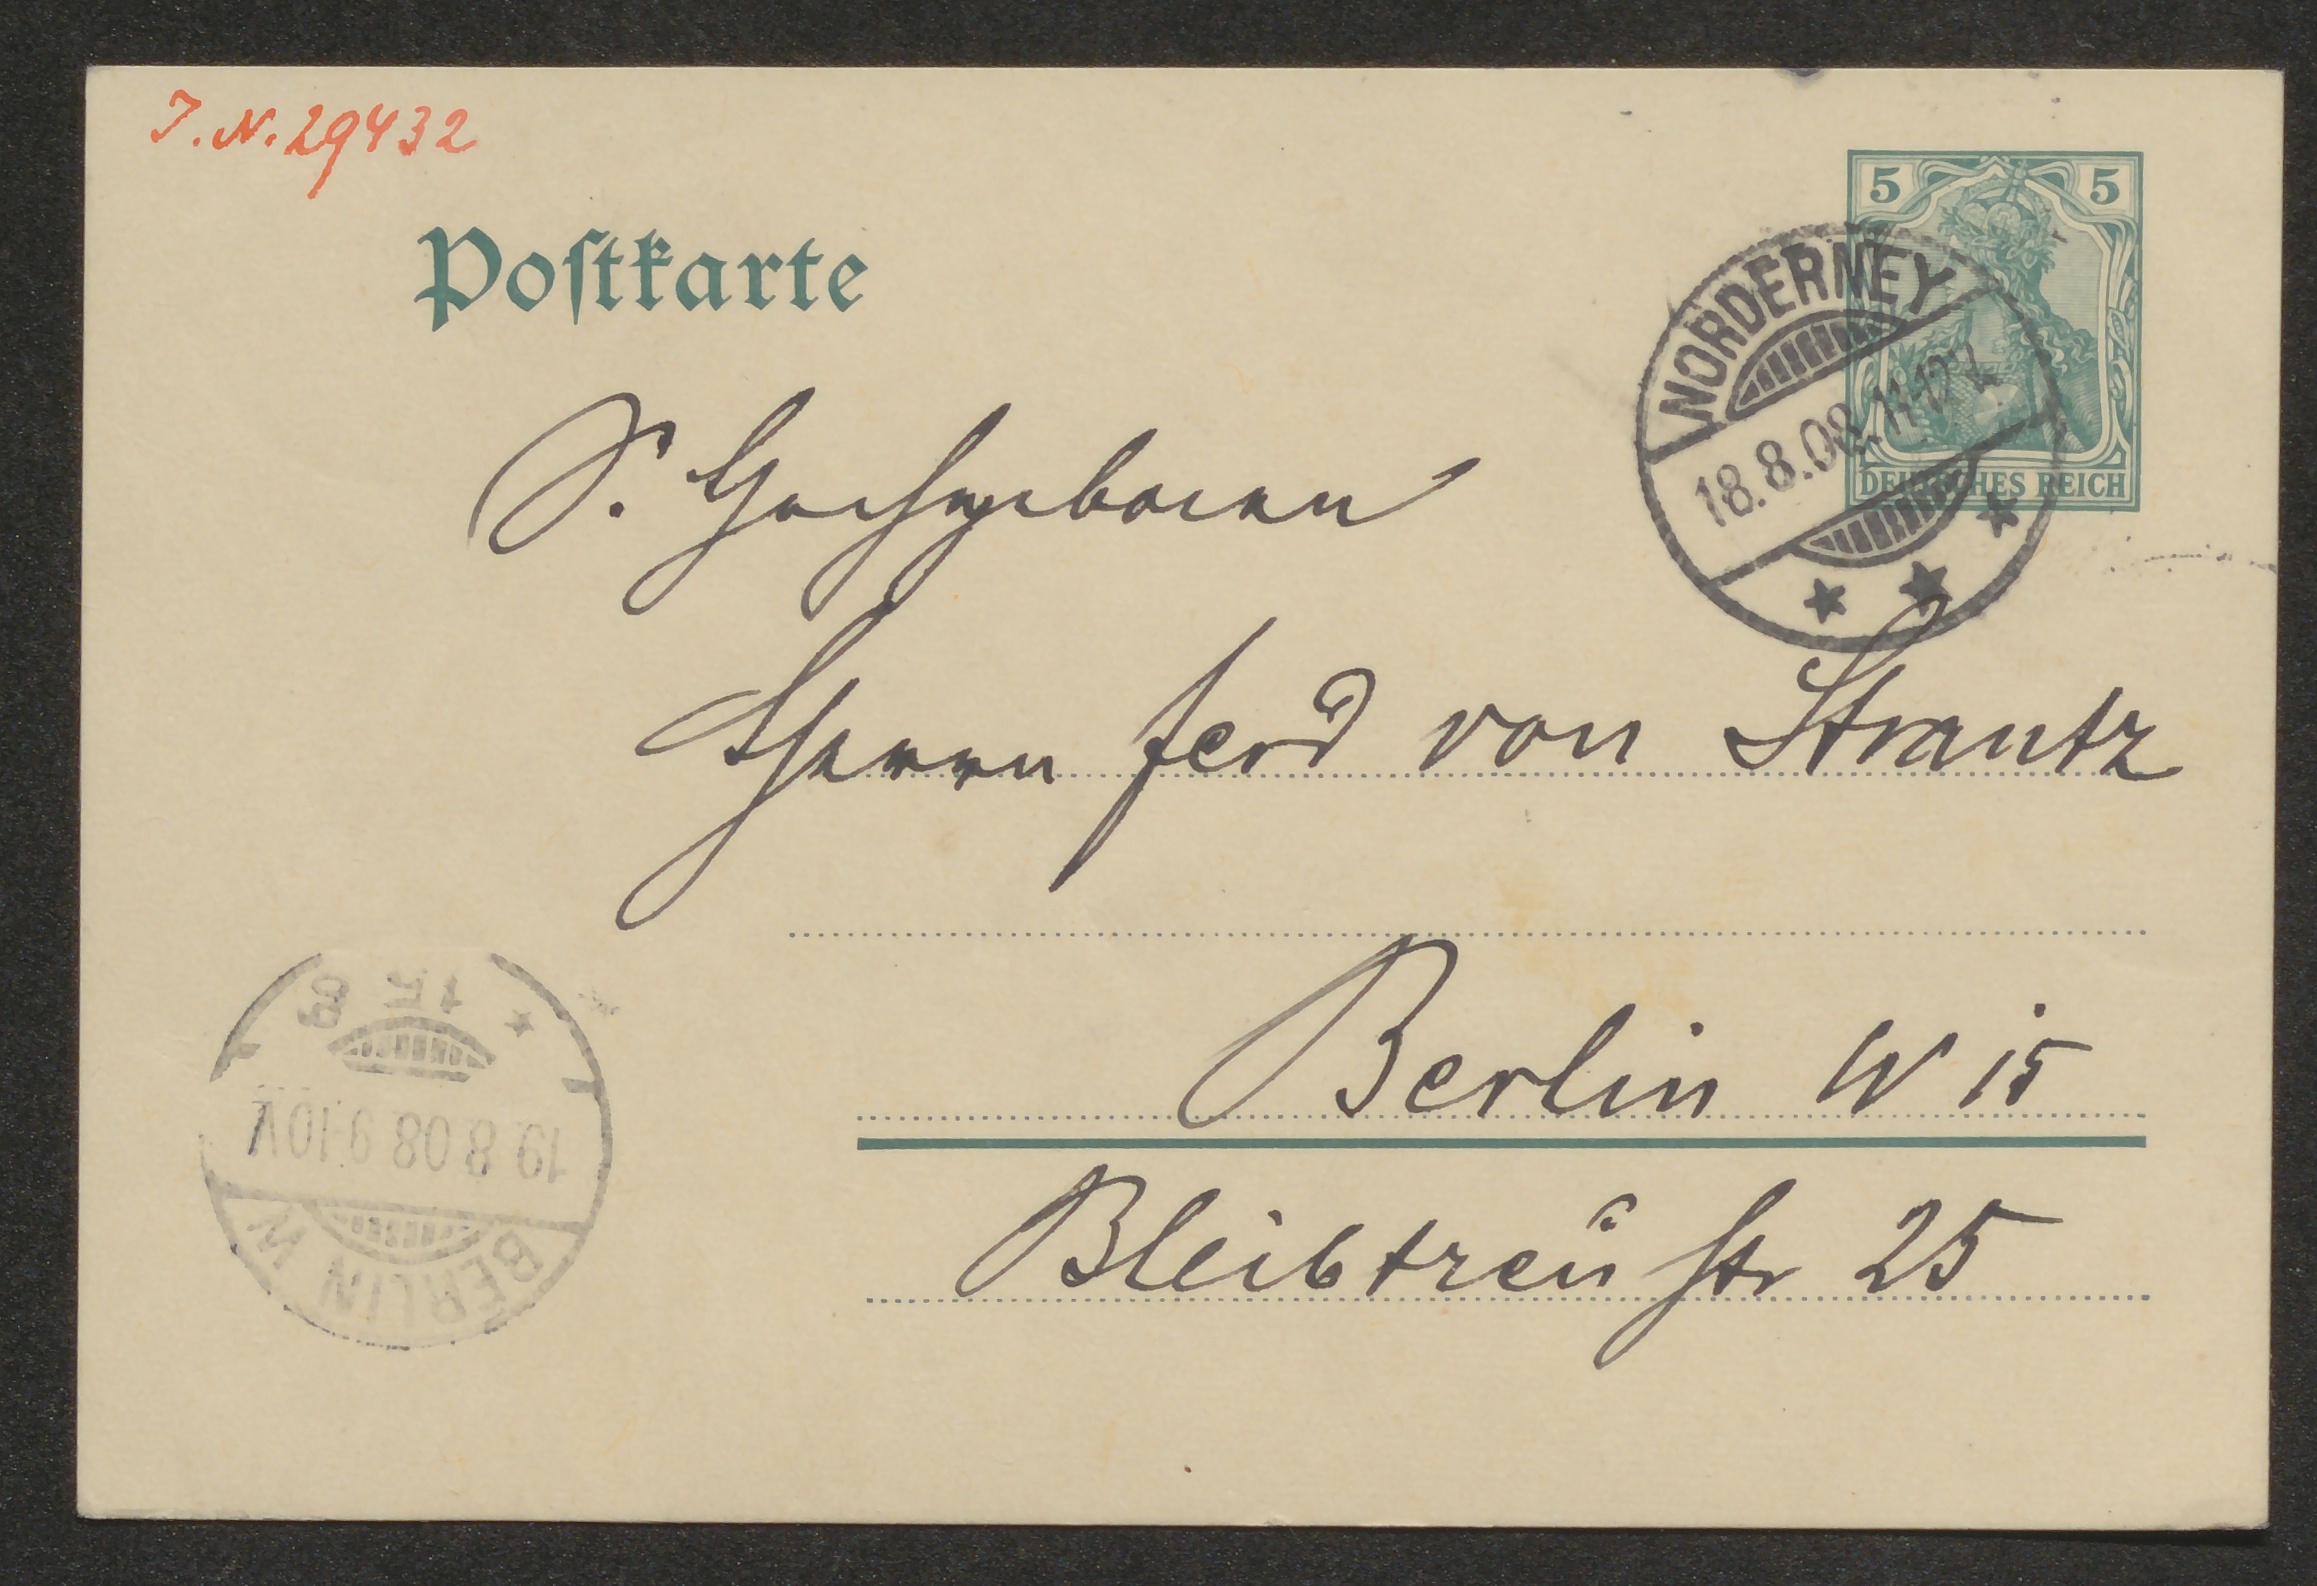 J.N. 29432
Postkarte
5 5
DEUTSCHES REICH
NORDERNEY
18.8.08. 11-12 V.
S. Hochgeboren
Herrn Ferd von Strantz
Berlin W 15
Bleibtreu Str 25
BERLIN W
19.8.08 9-10V